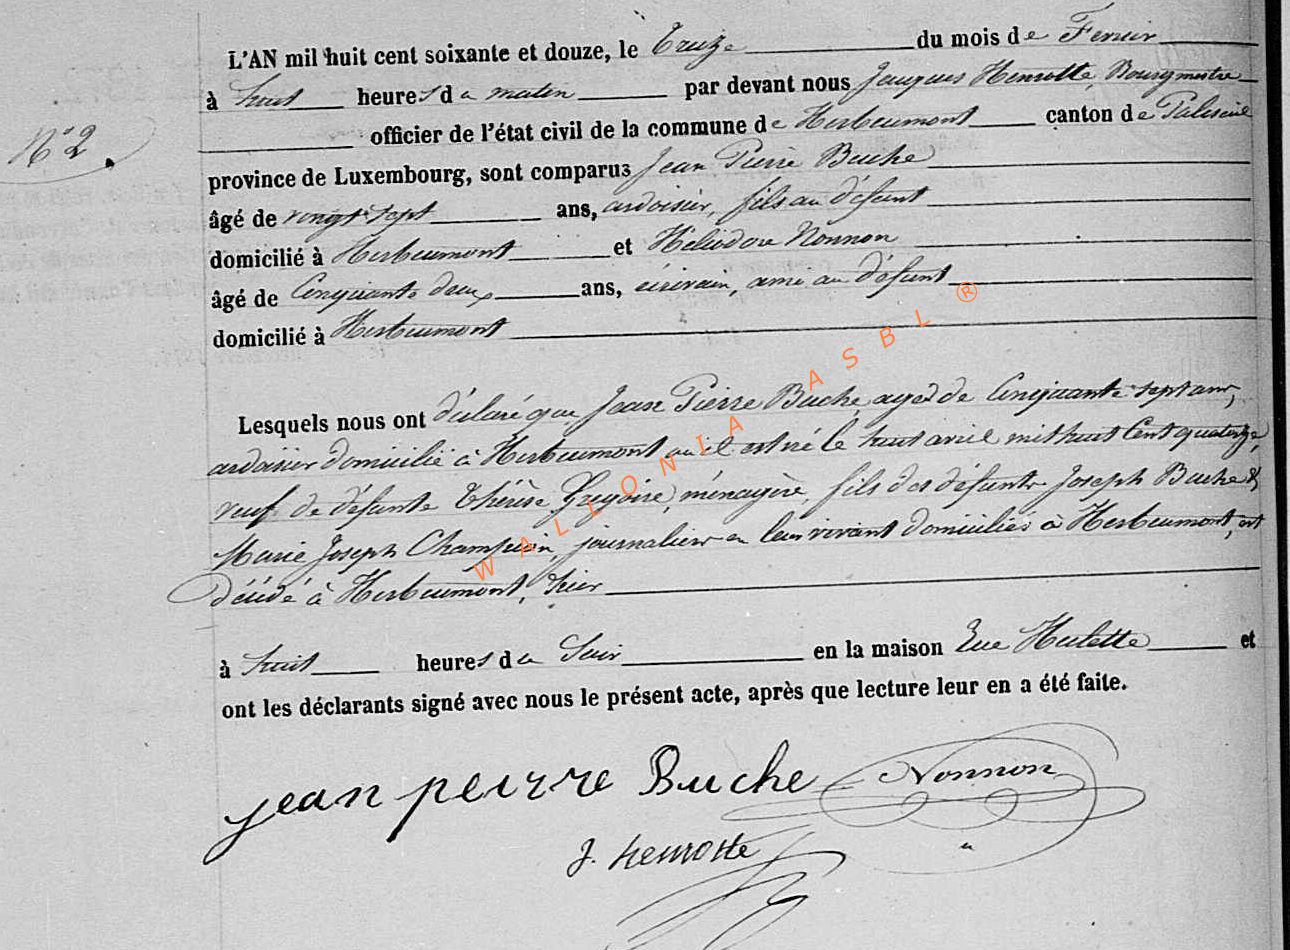 L'AN mil huit cent soixante et douze, le Treize du mois de Fevrier
à huit heures du matin par devant nous Jacques Henrotte, Bourgmestre
N° 2. officier de l'état civil de la commune de Herbeumont canton de Paliseul
province de Luxembourg, sont comparus Jean Pierre Buche
âgé de vingt sept ans, ardoisier, fils au défunt
domicilié à Herbeumont et Héliodore Nonnon
âgé de Cinquante deux ans, écrivain, ami au défunt
domicilié à Herbeumont
Lesquels nous ont déclaré que Jean Pierre Buche, agé de Cinquante sept ans,
ardoisier domicilié à Herbeumont où il est né le huit avril mil huit Cent quatorze,
veuf de défunte Thérèse Gregoire, ménagère, fils des défunts Joseph Buche &
Marie Joseph Champion, journaliers en leur vivant domiciliés à Herbeumont, est
décédé à Herbeumont, hier
à huit heures du Soir en la maison Rue Hulette et
ont les déclarants signé avec nous le présent acte, après que lecture leur en a été faite.
jean peirre Buche Nonnon
J. Henrotte
WALLONIA ASBL ®